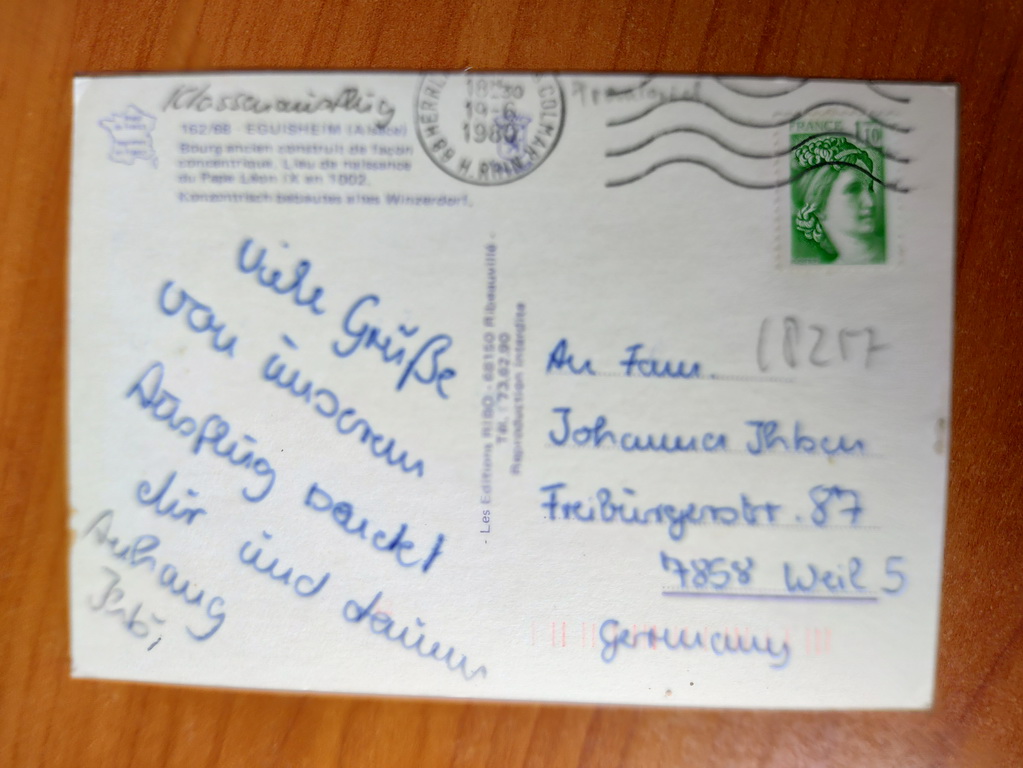 Klassenausflug
162/68 - EGUISHEIM (Alsace)
Bourg ancien construit de façon
concentrique. Lieu de naissance
du Pape Léon IX en 1002.
Konzentrisch bebautes altes Winzerdorf.
18H30
19-6
1980
COLMAR
H. RHIN
FRANCE 1,10
Viele Grüße
von unserem
Ausflug sendet
dir und deinem
Anhang
- Les Editions RIBO - 68150 Ribeauvillé -
Tél. : 73.62.90
Reproduction interdite
18257
An Fam.
Johanna
Freiburgerstr. 87
7858 Weil 5
Germany